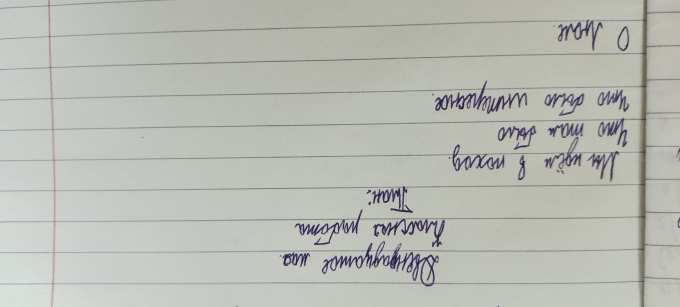 Двенадцатое мая.
Классная работа
План:
Мы идём в поход.
Что там было
Что было интересное.
О